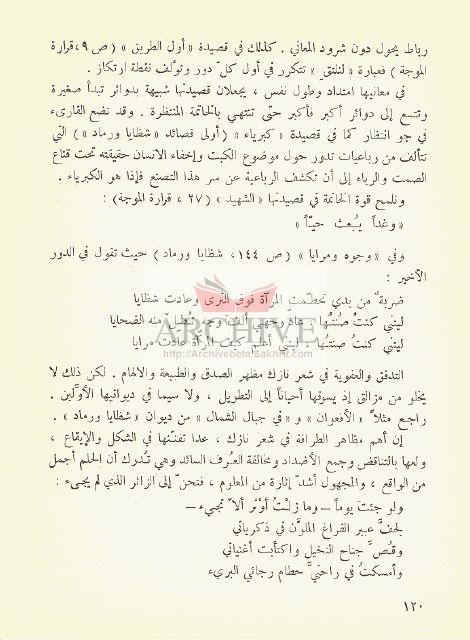 رباط يحول دون شرود المعاني . كذلك في قصيدة « أول الطريق » ( ص ٩، قرارة
الموجة ) فعبارة « لنلتق » تتكرر في أول كلّ دور وتؤلف نقطة ارتكاز .
في معانيها امتداد وطول نفس ، يجعلان قصيدتها شبيهة بدوائر تبدأ صغيرة
وتتسع إلى دوائر أكبر فأكبر حتى تنتهي بالخاتمة المنتظرة . وقد نضع القارىء
في جو انتظار كما في قصيدة « كبرياء » ( أولى قصائد « شظايا ورماد » ) التي
تتألف من رباعيات تدور حول موضوع الكبت وإخفاء الانسان حقيقته تحت قناع
الصمت والرياء إلى أن تكشف الرباعية عن سر هذا التصنع فإذا هو الكبرياء .
ونلمح قوة الخاتمة في قصيدتها « الشهيد » ( ٢٧ ، قرارة الموجة ) :
« وغداً يُبعث حيّاً »
وفي « وجوه ومرايا » ( ص ١٤٤، شظايا ورماد ) حيث تقول في الدور
الأخير :
ضربةٌ من يدي تحطّمتِ المرآة فوق الثرى وعادت شظايا
ليتني كنتُ صُنتُها وجهي ألف وجه منه الضحايا
ليتني كنتُ صنتها ليتني أعلم كيف المرآة عادت مرايا
ARCHIVE
http://Archivebeta.Sakhrit.com
التدفق والعفوية في شعر نازك مظهر الصدق والطبيعة والالهام . لكن ذلك لا
يخلو من مزالق إذ يسوقها أحياناً إلى التطويل ، ولا سيما في ديوانيها الأوّلين .
راجع مثلاً « الأفعوان » و « في جبال الشمال » من ديوان « شظايا ورماد » .
إن أهم مظاهر الطرافة في شعر نازك ، عدا تفنّنها في الشكل والإيقاع ،
ولعها بالتناقض وجمع الأضداد ومخالفة العُرف السائد وهي تُدرك أن الحلم أجمل
من الواقع ، والمجهول أشدّ إثارة من المعلوم ، فتحنّ إلى الزائر الذي لم يجيء :
ولو جئتَ يوماً — وما زلتُ أوثر ألاّ تجيء —
لجفّ عبير الفراغ الملوّن في ذكرياتي
وقُصَّ جناح التخيل واكتأبت أغنياتي
وأمسكتُ في راحتيَّ حطام رجائي البريء
١٢٠